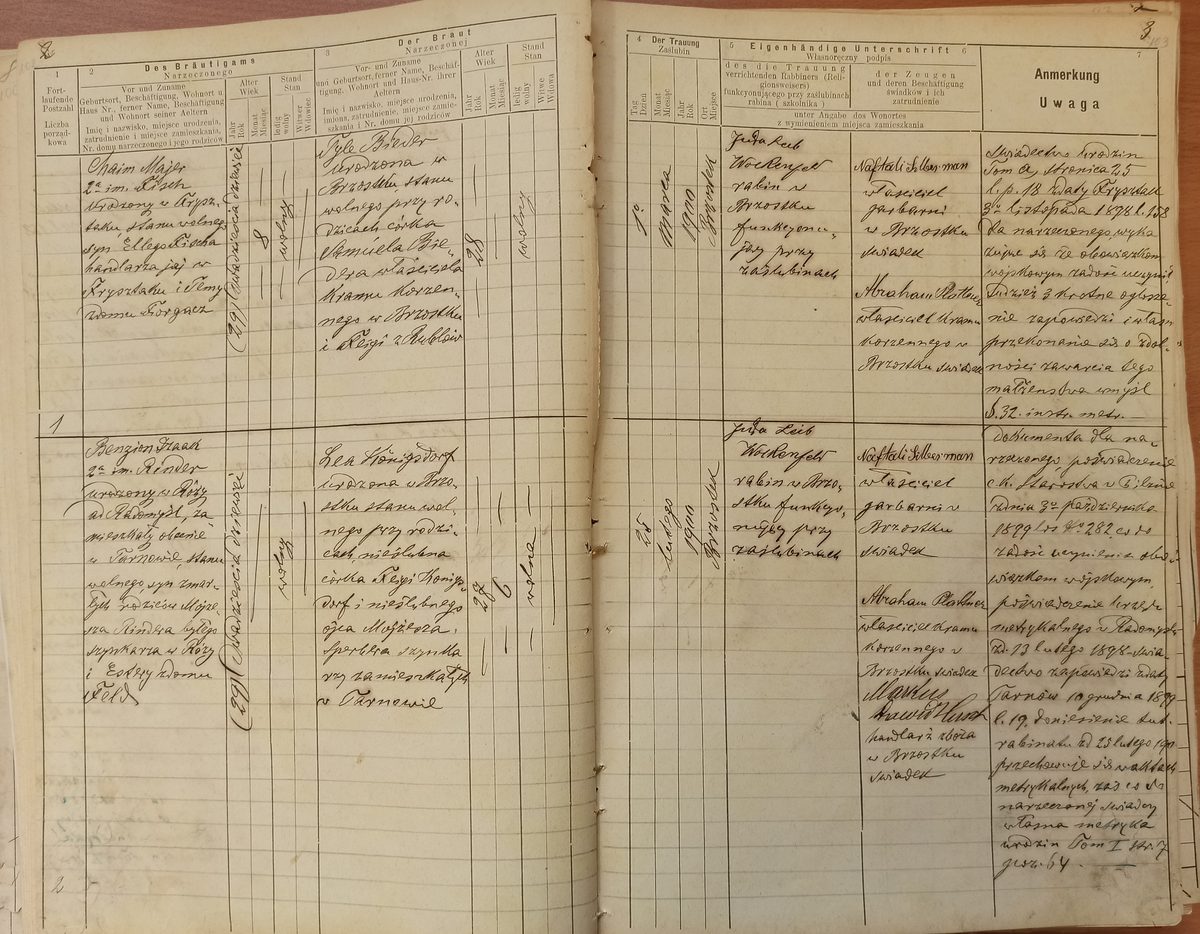 2
Des Bräutigams
Narzeczonego
Der Braut
Narzeczonej
1
Fort-
laufende
Postzahl
Liczba
porząd-
kowa
2
Vor und Zuname
Geburtsort, Beschäftigung, Wohnort u
Haus Nr., ferner Name, Beschäftigung
und Wohnort seiner
Aeltern
Imię i nazwisko, miejsce urodzenia,
zatrudnienie i miejsce zamieszkania,
Nr. domu narzeczonego i jego rodziców
Alter
Wiek
Jahr
Rok
Monat
Miesiąc
Stand
Stan
ledig
wolny
Witwer
Wdowiec
3
Vor- und Zuname
und Geburtsort, ferner Name, Beschäf-
tigung, Wohnort und Haus-Nr. ihrer
Aeltern
Imię i nazwisko, miejsce urodzenia,
zatrudnienie, miejsce zamie-
szkania i Nr. domu jej rodziców
Alter
Wiek
Jahr
Rok
Monat
Miesiąc
Stand
Stan
ledig
wolny
Witwe
Wdowa
Chaim Majer
2a im. Fisch
urodzony w Frysz-
taku stanu wolnego
syn Ellego Fischa
handlarza jaj w
Frysztaku i Temy
zdomu Forgacz
(29) dwadzieścia dziewięć
8
wolny
Tyle Bieder
urodzona w
Brzostku stanu
wolnego przy ro-
dzicach córka
Samuela Bie-
dera właściciela
kramu korzen-
nego w Brzostku
i Feigi z Rublów
28
wolny
1
Benzion Izaak
2a im. Rinder
urodzony w Róży
ad Radomyśl, za-
mieszkały obecnie
w Tarnowie, stanu
wolnego, syn zmar-
łych rodziców Mojże-
sza Rindera byłego
szynkarza w Róży
i Estery zdomu
Feld
(29) dwadzieścia dziewięć
wolny
Lea Königsdorf
urodzona w Brzo-
stku stanu wol-
nego przy rodzi-
cach, nieślubna
córka Feigi Königs-
dorf i nieślubnego
ojca Mojżesza
Sperbera szynka
rzy zamieszkałych
w Tarnowie
27
6
wolna
2
3
4
Der Trauung
Zaślubin
Tag
Dzień
Monat
Miesiąc
Jahr
Rok
Ort
Miejsce
5 Eigenhändige Unterschrift 6
Własnoręczny podpis
des die Trauung
verrichtenden Rabbiners (Reli-
gionsweisers)
funkcyonującego przy zaślubinach
rabina ( szkolnika )
der Zeugen
und deren Beschäftigung
świadków i ich
zatrudnienie
unter Angabe des Wonortes
z wymienieniem miejsca zamieszkania
7
Anmerkung
Uwaga
1o
Marca
1900
Brzostek
Juda Leib
Wockenfeld
rabin w
Brzostku
funkcyonu-
jący przy
zaślubinach
Naftali Silberman
właściciel
garbarni
w Brzostku
świadek
Abraham Plattner
właściciel kramu
korzennego w
Brzostku świadek
Świadectwo urodzin
Tom A, stronica 25
l.p. 18 zdaty Frysztak
3o listopada 1898 l. 158
dla narzeczonego wyka
zujące się że obowiązkom
wojskowym zadość uczynił
Tudzież 3 krotne ogłosze-
nie zapowiedzi i własn
przekonanie się o zdol-
ności zawarcia tego
małżeństwa wmyśl
§. 32. instr. metr.
28
lutego
1900
Brzostek
Juda Leib
Wockenfeld
rabin w Brzo-
stku funkcyo-
nujący przy
zaślubinach
Naftali Silberman
właściciel
garbarni w
Brzostku
świadek
Abraham Plattner
właściciel kramu
korzennego w
Brzostku świadek
Markus
Dawid
handlarz zboża
w Brzostku
świadek
Dokumenta dla na-
rzeczonego poświadczenie
c.k. Starostwa w Pilznie
zdnia 3o października
1899 282 co do
zadość uczynienia obo-
wiązkom wojskowym,
poświadczenie urzędu
metrykalnego w Radomyślu
zd. 13 lutego 1898 świa-
dectwo zapowiedzi zdaty
Tarnów 10 grudnia 1899
l. 19. doniesienie tut.
rabinatu zd 25 lutego 1900
przechowuje się w aktach
metrykalnych, zaś co do
narzeczonej świadczy
własna metryka
urodzin Tom I str. 7
poz. 64.